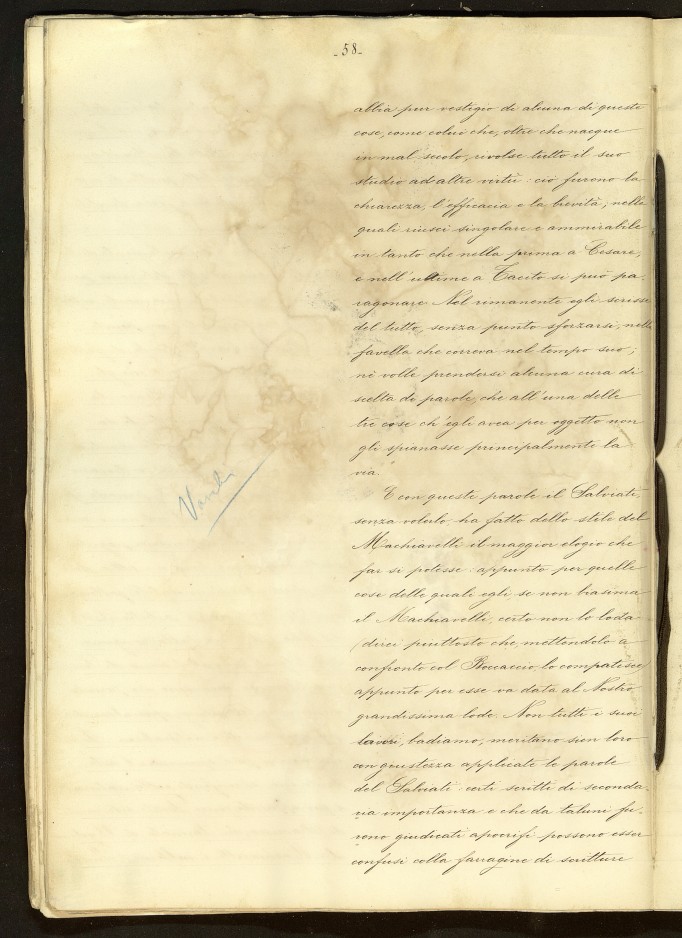 - 58 -
abbia pur vestigio di alcuna di queste
cose, come colui che, oltre che nacque
in mal secolo, rivolse tutto il suo
studio ad altre virtù: ciò furono la
chiarezza, l'efficacia e la brevità; nelle
quali riuscì singolare e ammirabile
in tanto che nella prima a Cesare,
e nell'ultime a Tacito si può pa-
ragonare. Nel rimanente egli scrisse
del tutto, senza punto sforzarsi, nella
favella che correva nel tempo suo;
nè volle prendersi alcuna cura di
scelta di parole, che all'una delle
tre cose ch'egli avea per oggetto non
gli spianasse principalmente la
via.
E con queste parole il Salviati,
senza volerlo, ha fatto dello stile del
Machiavelli il maggior elogio che
far si potesse: appunto per quelle
cose delle quali egli se non biasima
il Machiavelli, certo non lo loda
(direi piuttosto che, mettendolo a
confronto col Boccaccio, lo compatisce)
appunto per esse va data al Nostro
grandissima lode. Non tutti i suoi
lavori, badiamo, meritano sien loro
con giustezza applicate le parole
del Salviati: certi scritti di seconda-
ria importanza e che da taluni fu-
rono giudicati apocrifi possono esser
confusi colla farragine di scritture